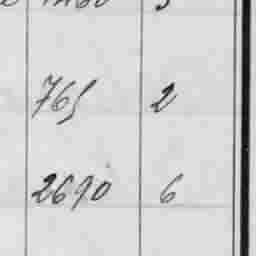 765 2
2690 6